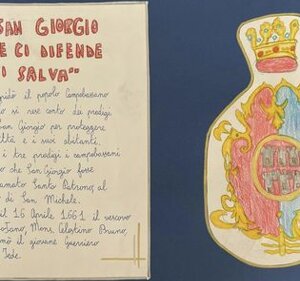 SAN GIORGIO
E CI DIFENDE
I SALVA"
il popolo Campobassano
si rese conto dei prodigi
San Giorgio per proteggere
città e i suoi abitanti,
i tre prodigi i campobassani
che San Giorgio fosse
Santo Patrono, al
di San Michele.
il 16 Aprile 1661 il vescovo
Mons. Celestino Bruno,
il giovane Guerriero
Fede.